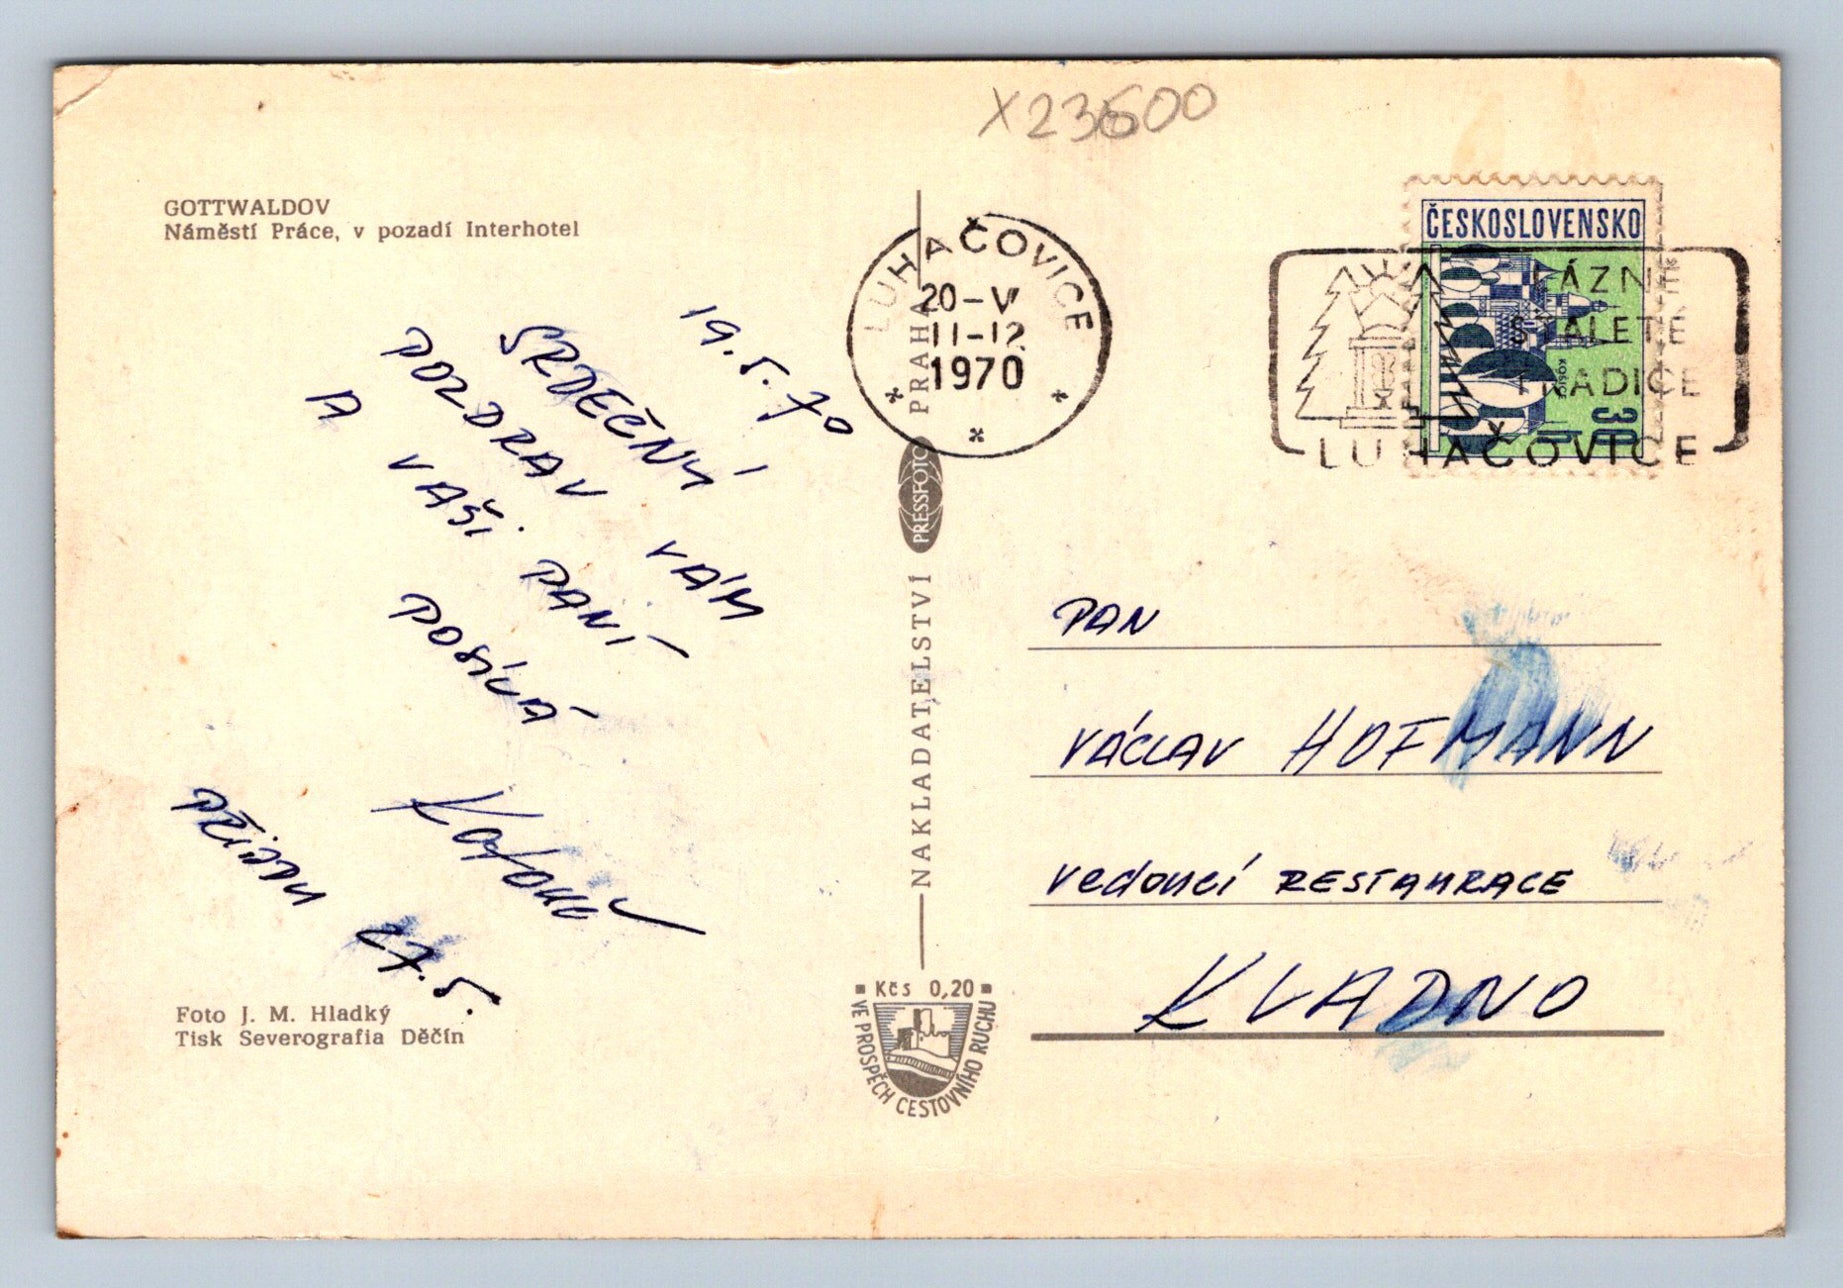 X23600
GOTTWALDOV
Náměstí Práce, v pozadí Interhotel
19.5.70
SRDEČNÝ
POZDRAV VÁM
A VAŠÍ PANÍ
POSÍLÁ
PŘÍJDU 27.5.
Foto J. M. Hladký
Tisk Severografia Děčín
LUHAČOVICE
20-V
11-12
1970
NAKLADATELSTVÍ PRESSFOTO PRAHA
Kčs 0,20
VE PROSPĚCH CESTOVNÍHO RUCHU
ČESKOSLOVENSKO
KOŠICE
30 h
LÁZNĚ
STALETÉ
TRADICE
LUHAČOVICE
PAN
VÁCLAV HOFMANN
vedoucí RESTAURACE
KLADNO